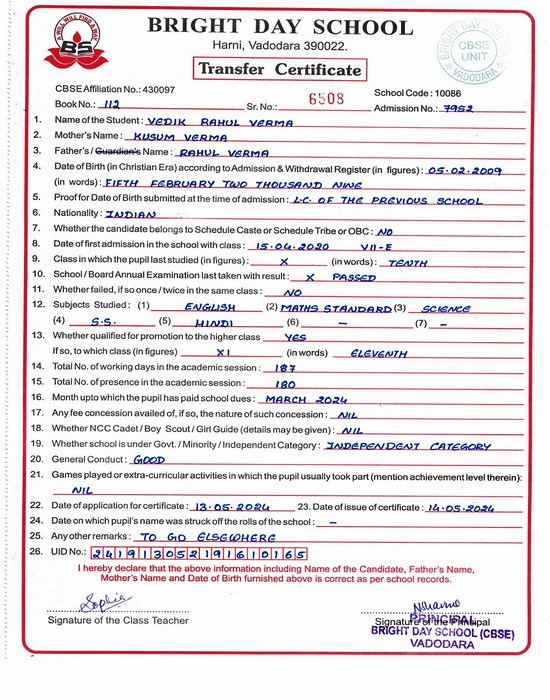 A WILL WILL FIND A WAY
BS
BRIGHT DAY SCHOOL
Harni, Vadodara 390022.
BRIGHT DAY SCHOOL
CBSE
UNIT
VADODARA
Transfer Certificate
CBSE Affiliation No.: 430097 School Code : 10086
Book No.: 112 Sr. No.: 6508 Admission No.: 7952
1. Name of the Student : VEDIK RAHUL VERMA
2. Mother's Name : KUSUM VERMA
3. Father's / Guardian's Name : RAHUL VERMA
4. Date of Birth (in Christian Era) according to Admission & Withdrawal Register (in figures) : 05.02.2009
(in words) : FIFTH FEBRUARY TWO THOUSAND NINE
5. Proof for Date of Birth submitted at the time of admission : L.C. OF THE PREVIOUS SCHOOL
6. Nationality : INDIAN
7. Whether the candidate belongs to Schedule Caste or Schedule Tribe or OBC : NO
8. Date of first admission in the school with class : 15.04.2020 VII-E
9. Class in which the pupil last studied (in figures) : X (in words) : TENTH
10. School / Board Annual Examination last taken with result : X PASSED
11. Whether failed, if so once / twice in the same class : NO
12. Subjects Studied : (1) ENGLISH (2) MATHS STANDARD (3) SCIENCE
(4) S.S. (5) HINDI (6) – (7) –
13. Whether qualified for promotion to the higher class YES
If so, to which class (in figures) XI (in words) ELEVENTH
14. Total No. of working days in the academic session : 187
15. Total No. of presence in the academic session : 180
16. Month upto which the pupil has paid school dues : MARCH 2024
17. Any fee concession availed of, if so, the nature of such concession : NIL
18. Whether NCC Cadet / Boy Scout / Girl Guide (details may be given) : NIL
19. Whether school is under Govt. / Minority / Independent Category : INDEPENDENT CATEGORY
20. General Conduct : GOOD
21. Games played or extra-curricular activities in which the pupil usually took part (mention achievement level therein):
NIL
22. Date of application for certificate : 13.05.2024 23. Date of issue of certificate : 14.05.2024
24. Date on which pupil's name was struck off the rolls of the school : –
25. Any other remarks : TO GO ELSEWHERE
26. UID No.: 241913052191610165
I hereby declare that the above information including Name of the Candidate, Father's Name,
Mother's Name and Date of Birth furnished above is correct as per school records.
Sophia
Signature of the Class Teacher Signature of the Principal
PRINCIPAL
BRIGHT DAY SCHOOL (CBSE)
VADODARA